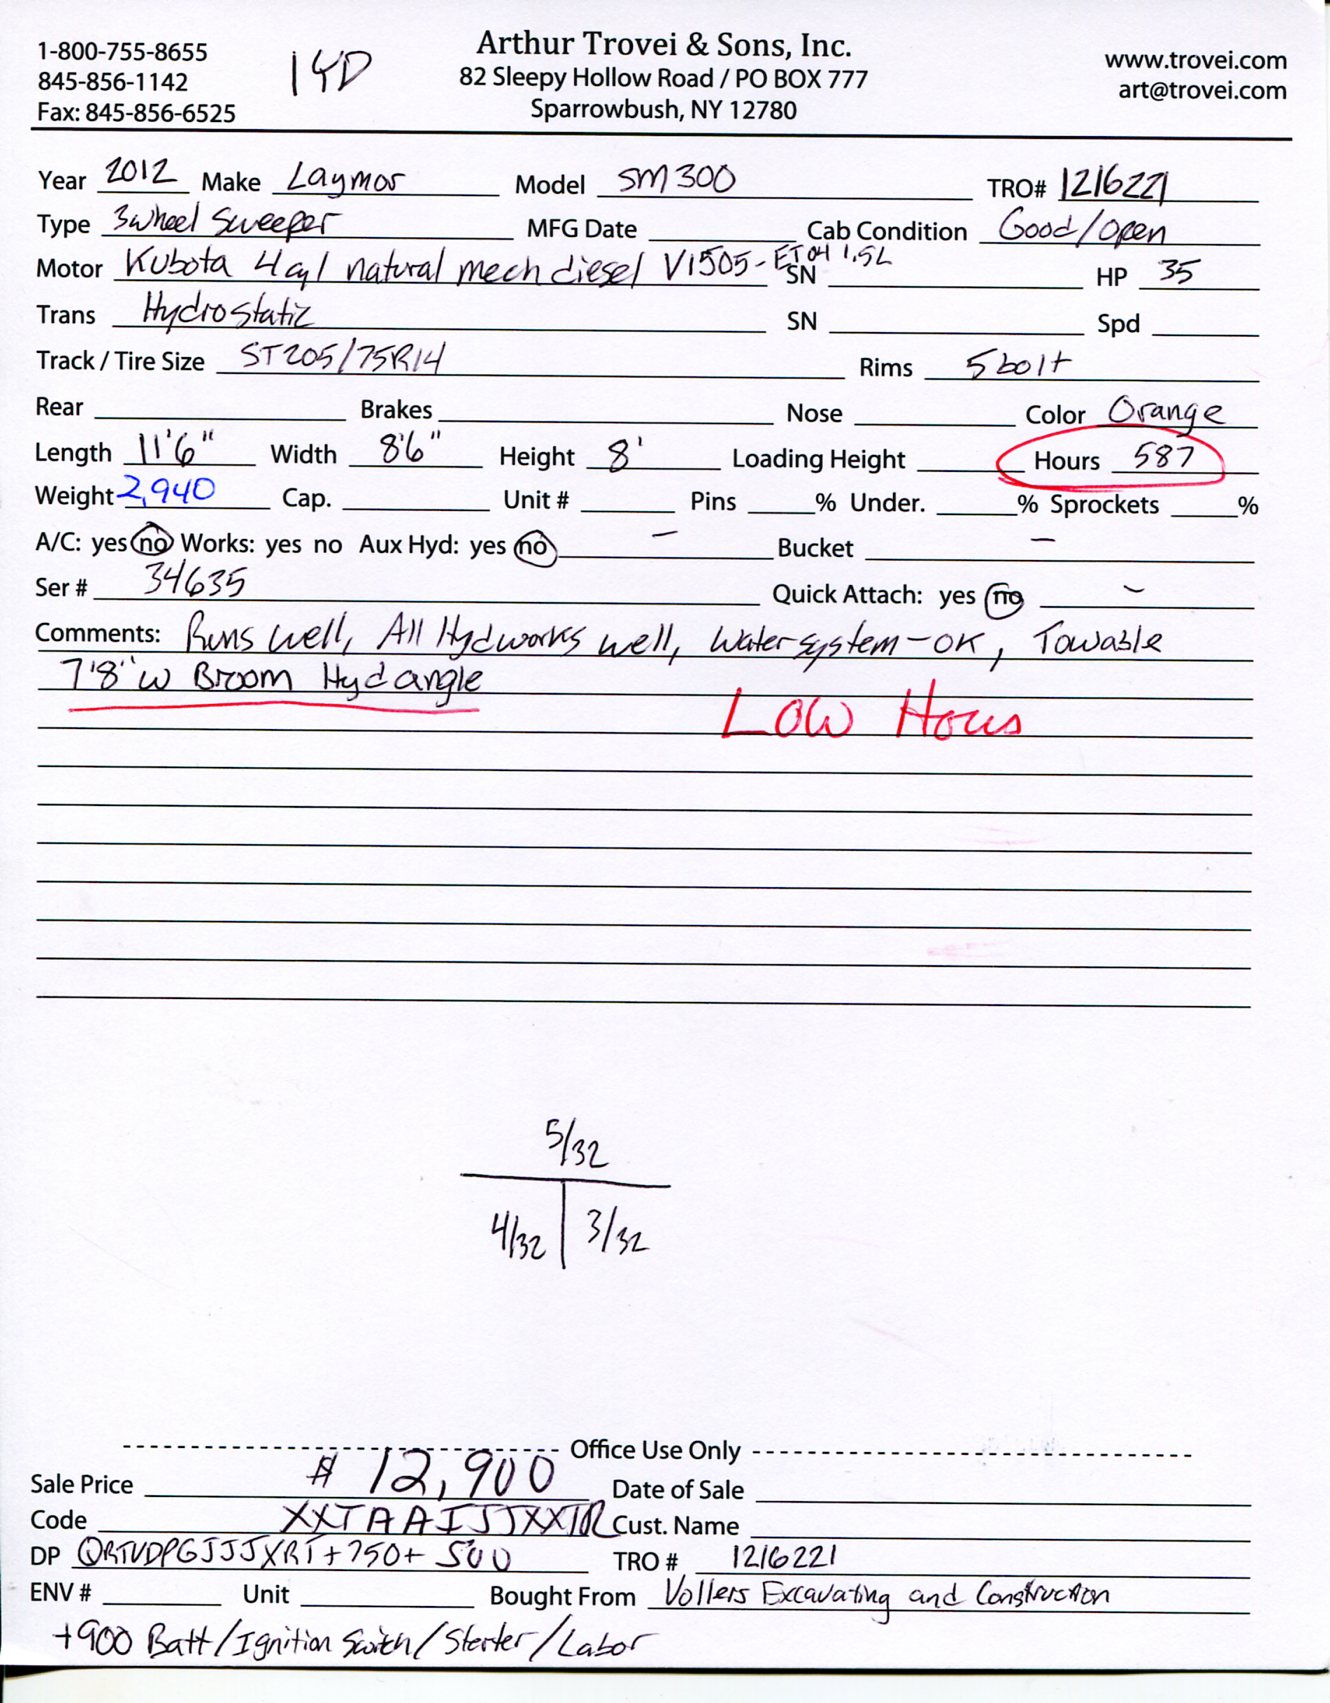 1-800-755-8655
845-856-1142
Fax: 845-856-6525
14D
Arthur Trovei & Sons, Inc.
82 Sleepy Hollow Road / PO BOX 777
Sparrowbush, NY 12780
www.trovei.com
art@trovei.com
Year 2012 Make Laymor Model SM300 TRO# 1216221
Type 3wheel Sweeper MFG Date Cab Condition Good/open
Motor Kubota 4cyl natural mech diesel V1505-ET04 1.5L SN HP 35
Trans Hydrostatic SN Spd
Track / Tire Size ST205/75R14 Rims 5 bolt
Rear Brakes Nose Color Orange
Length 11'6" Width 8'6" Height 8' Loading Height Hours 587
Weight 2,940 Cap. Unit # Pins % Under. % Sprockets %
A/C: yes no Works: yes no Aux Hyd: yes no – Bucket –
Ser # 34635 Quick Attach: yes no –
Comments: Runs well, All Hyd works well, Water system-OK, Towable
7'8" w Broom Hyd angle
LOW Hours
5/32
4/32 3/32
Office Use Only
Sale Price $12,900 Date of Sale
Code XXTAAIJJXXTR Cust. Name
DP QRTVDPGJJJXRT+750+500 TRO # 1216221
ENV # Unit Bought From Vollers Excavating and Construction
+900 Batt/Ignition Switch/Starter/Labor